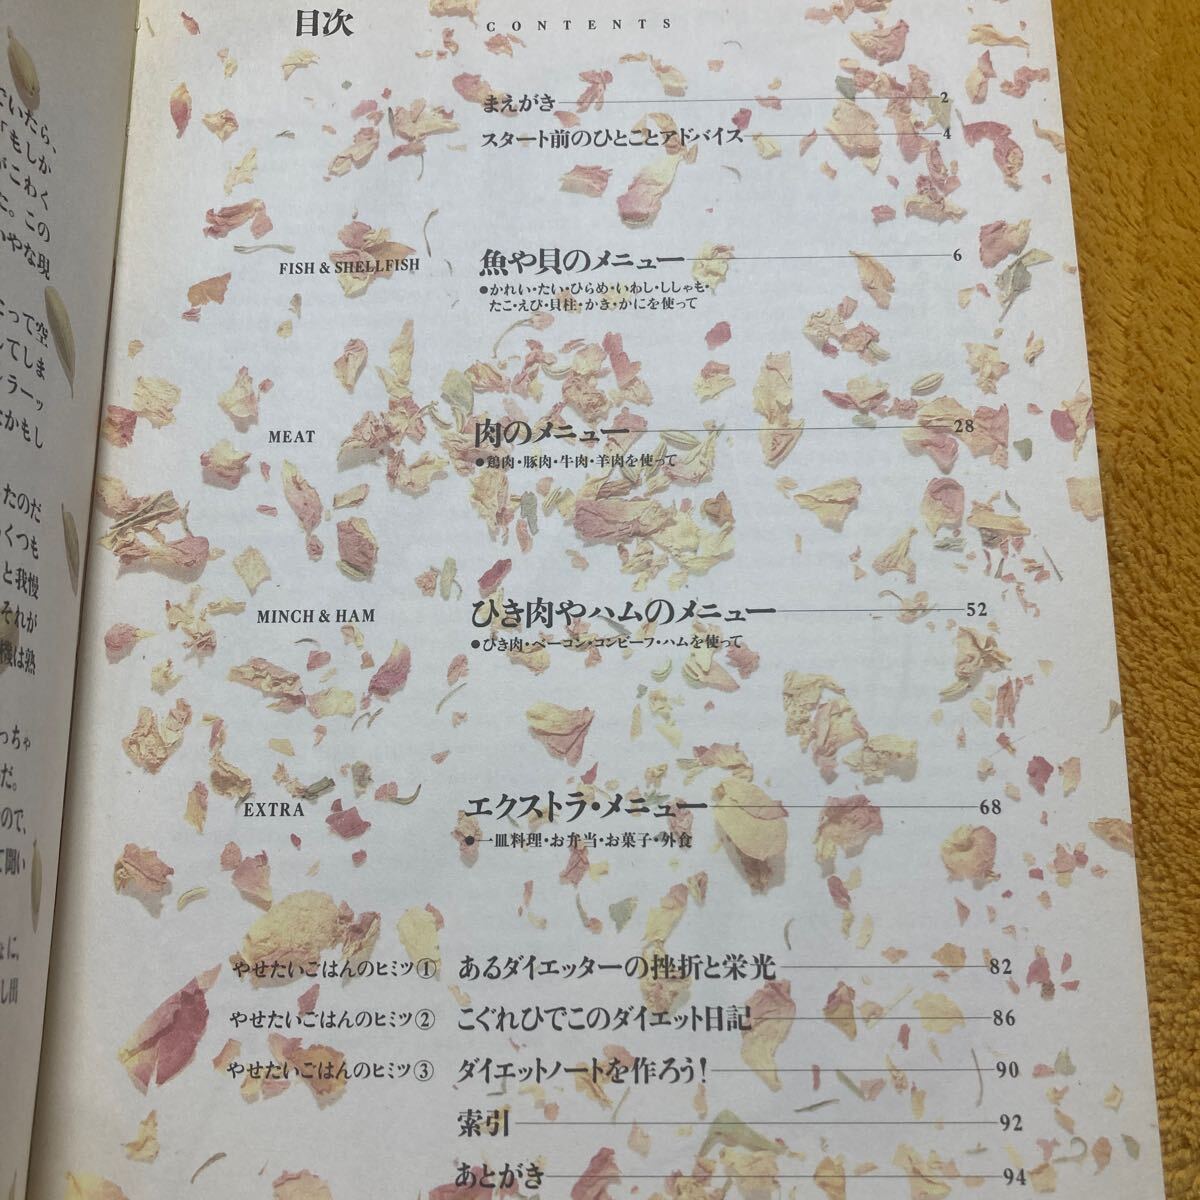 目次 CONTENTS
まえがき 2
スタート前のひとことアドバイス 4
FISH & SHELLFISH 魚や貝のメニュー 6
●かれい・たい・ひらめ・いわし・ししゃも・
たこ・えび・貝柱・かき・かにを使って
MEAT 肉のメニュー 28
●鶏肉・豚肉・牛肉・羊肉を使って
MINCH & HAM ひき肉やハムのメニュー 52
●ひき肉・ベーコン・コンビーフ・ハムを使って
EXTRA エクストラ・メニュー 68
●一皿料理・お弁当・お菓子・外食
やせたいごはんのヒミツ① あるダイエッターの挫折と栄光 82
やせたいごはんのヒミツ② こぐれひでこのダイエット日記 86
やせたいごはんのヒミツ③ ダイエットノートを作ろう! 90
索引 92
あとがき 94
いたら、
「もしか
がこわく
た。この
いやな現
って空
してしま
ラーッ
なかもし
たのだ
くつも
と我慢
それが
機は熟
っちゃ
だ。
ので、
て聞い
に、
し出